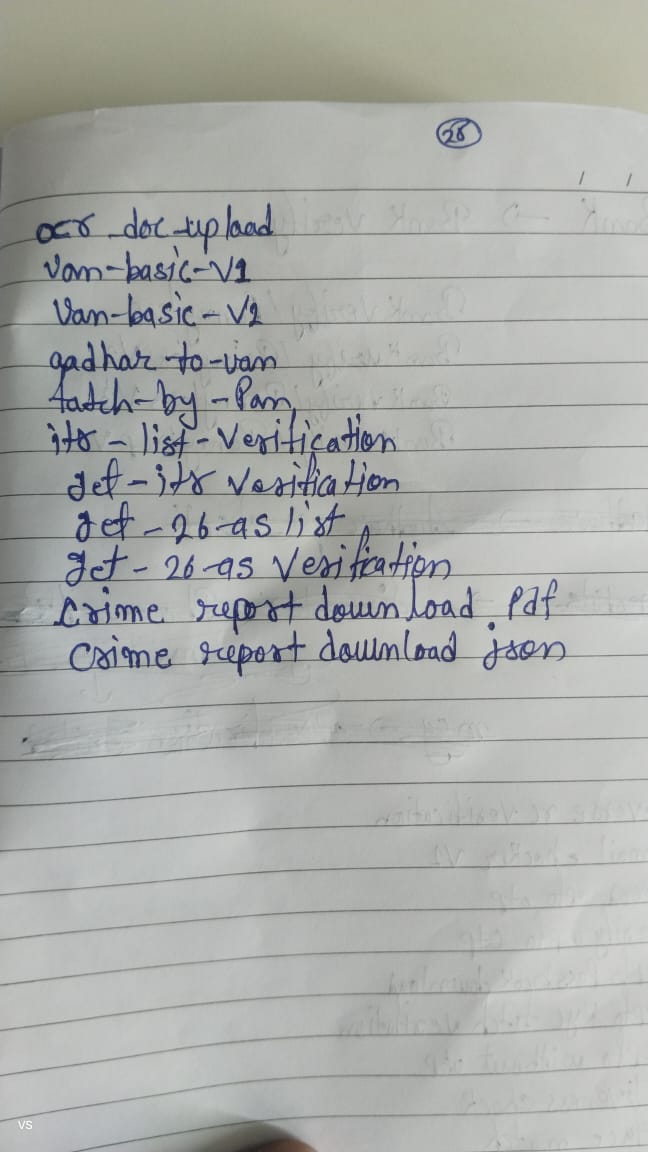 28
ocr-doc-upload
Van-basic-V1
Van-basic-V2
aadhar-to-uan
fatch-by-Pan
itr-list-Verification
get-itr Verification
get-26-as list
get-26-as Verification
Crime report download.pdf
Crime report download json
VS